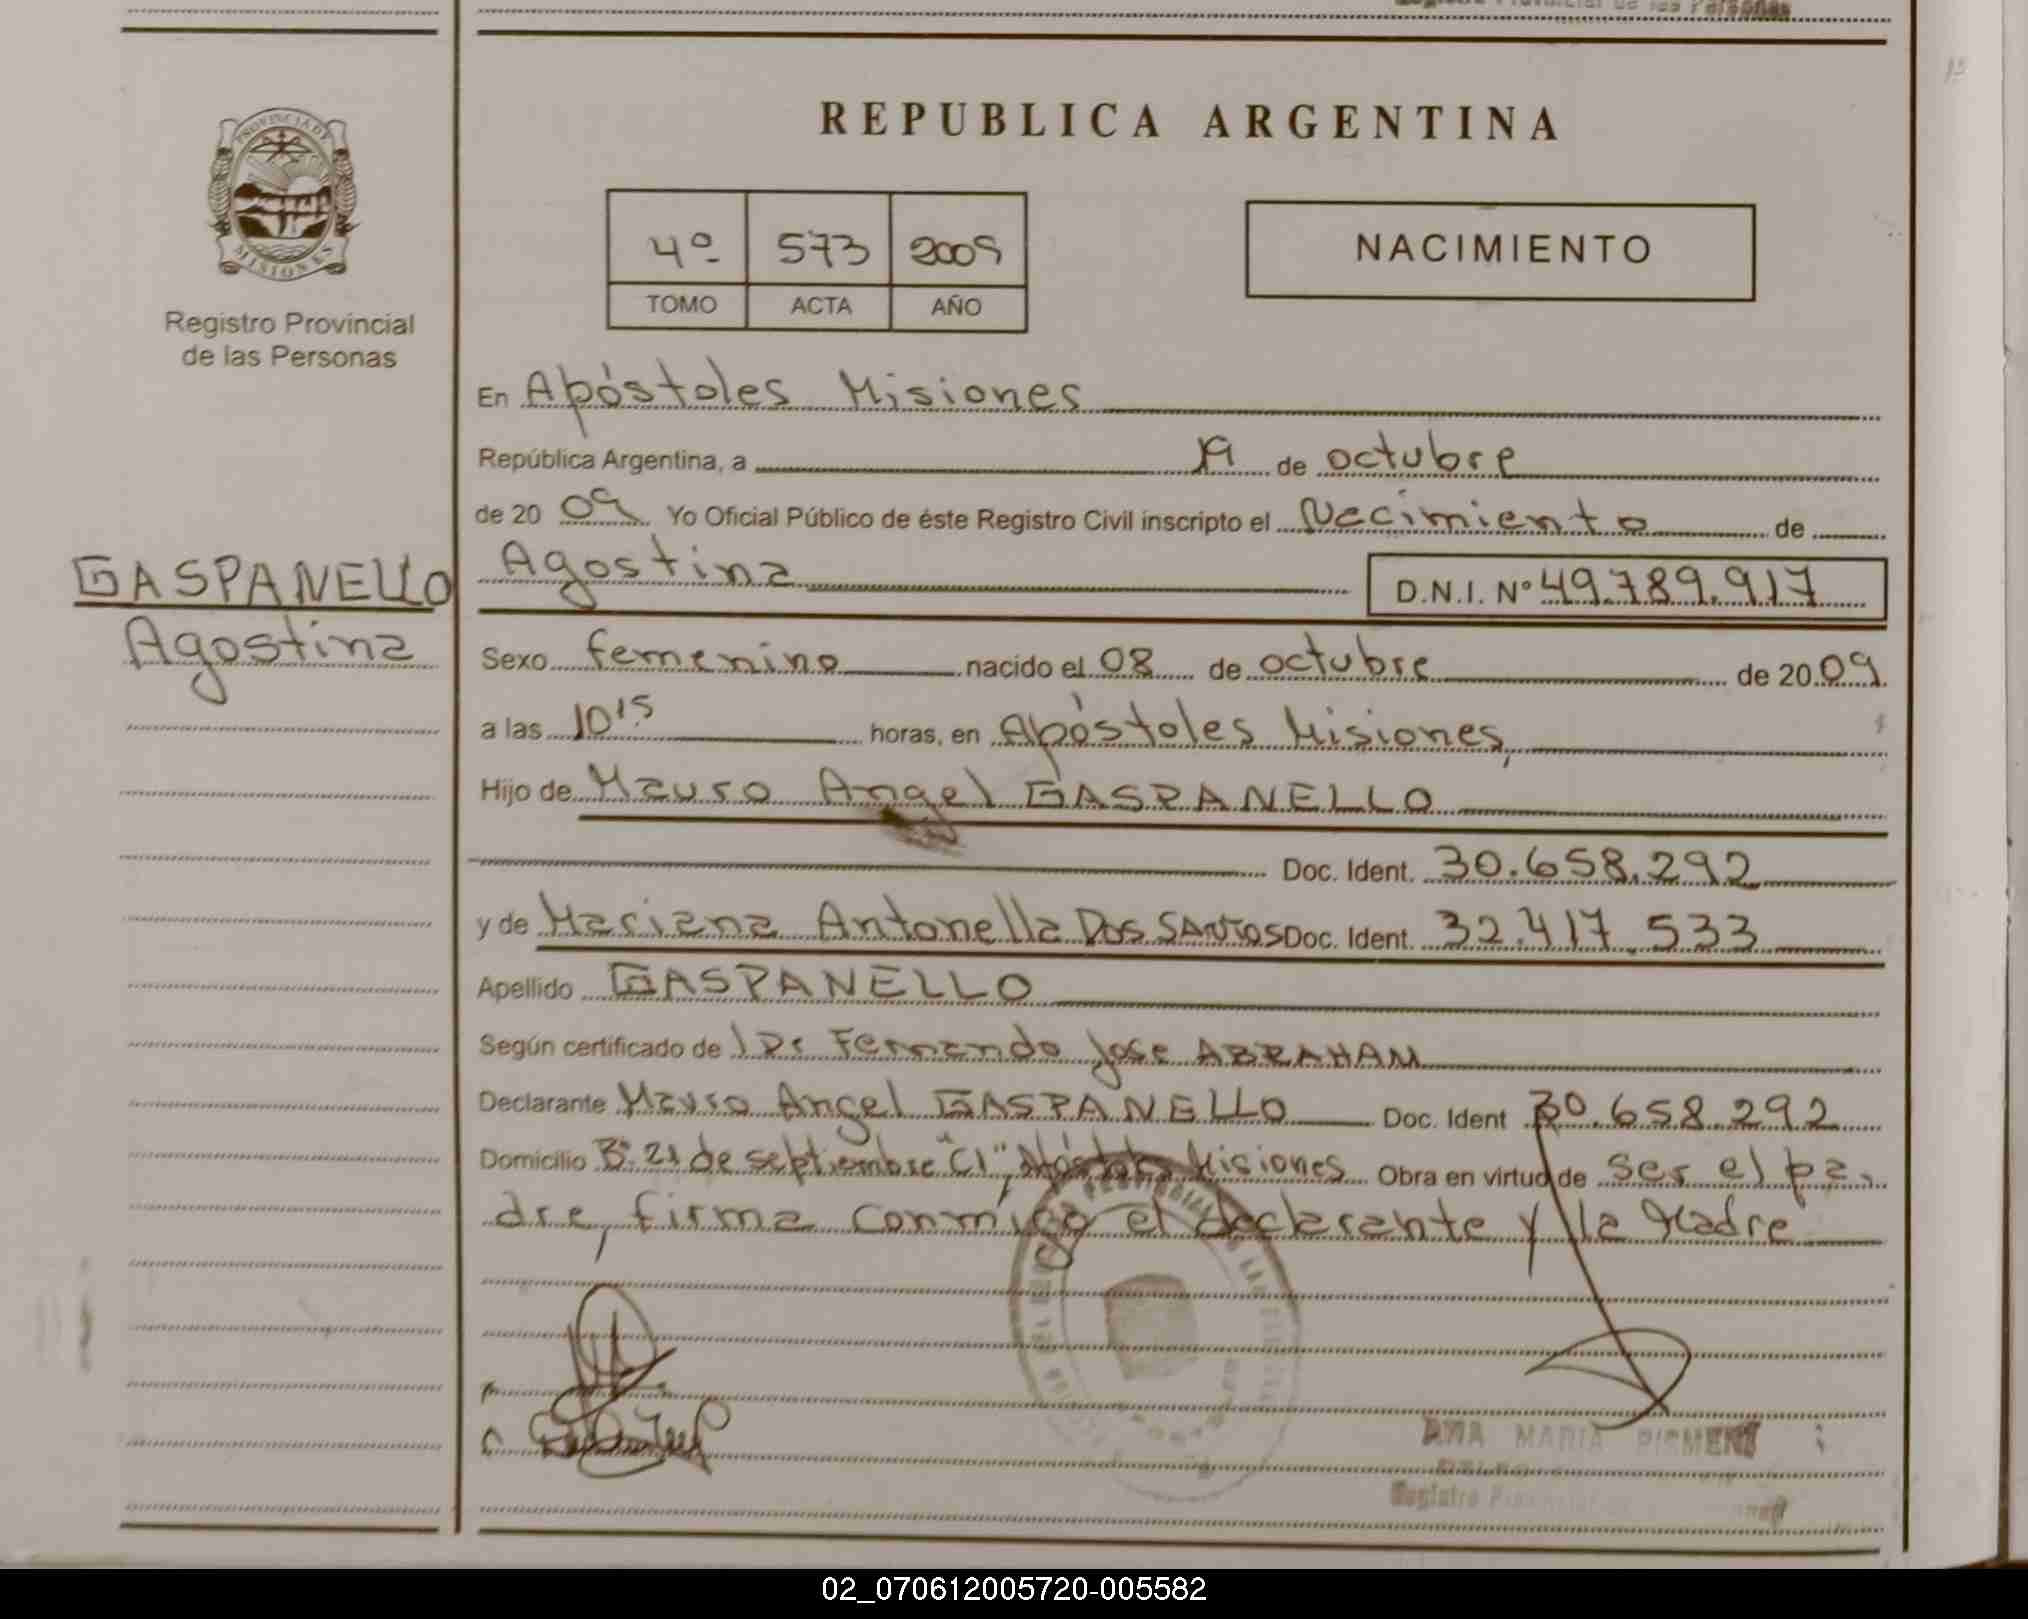 REPUBLICA ARGENTINA
PROVINCIA DE
MISIONES
Registro Provincial
de las Personas
4º 573 2009
TOMO ACTA AÑO
NACIMIENTO
En Apóstoles Misiones
República Argentina, a 19 de octubre
de 20 09 Yo Oficial Público de éste Registro Civil inscripto el Nacimiento de
GASPANELLO
Agostina
Agostina D.N.I. Nº 49.789.917
Sexo femenino nacido el 08 de octubre de 20 09
a las 10 15 horas, en Apóstoles Misiones,
Hijo de Mauro Angel GASPANELLO
Doc. Ident. 30.658.292
y de Mariana Antonella DOS SANTOS Doc. Ident. 32.417.533
Apellido GASPANELLO
Según certificado de Dr Fernando Jose ABRAHAM
Declarante Mauro Angel GASPANELLO Doc. Ident 30.658.292
Domicilio Bº 21 de septiembre "C1", Apóstoles Misiones Obra en virtud de ser el pa-
dre, firma conmigo el declarante y la Madre
ANA MARIA
Registro
02_070612005720-005582